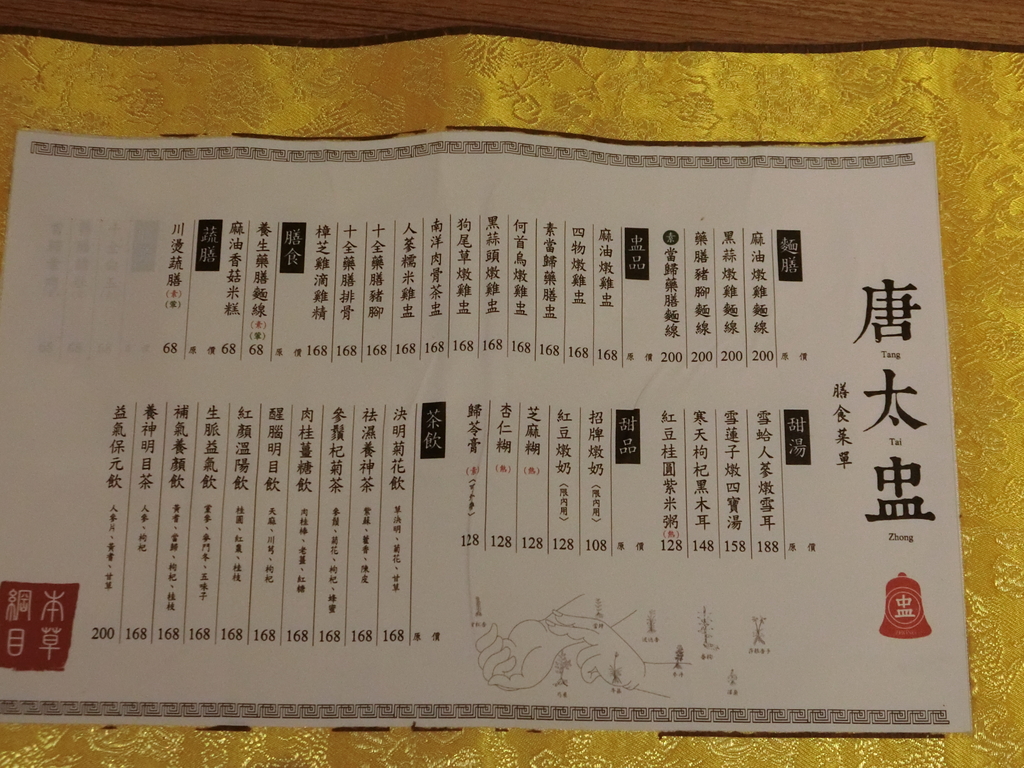 唐太盅
Tang
Tai
Zhong
膳食菜單
盅
麵膳
原價
麻油燉雞麵線 200
黑蒜燉雞麵線 200
藥膳豬腳麵線 200
素當歸藥膳麵線 200
盅品
原價
麻油燉雞盅 168
四物燉雞盅 168
素當歸藥膳盅 168
何首烏燉雞盅 168
黑蒜頭燉雞盅 168
狗尾草燉雞盅 168
南洋肉骨茶盅 168
人蔘糯米雞盅 168
十全藥膳豬腳 168
十全藥膳排骨 168
樟芝雞滴雞精 168
膳食
原價
養生藥膳麵線(素)(葷) 68
麻油香菇米糕 68
蔬膳
原價
川燙蔬膳(素)(葷) 68
甜湯
原價
雪蛤人蔘燉雪耳 188
雪蓮子燉四寶湯 158
寒天枸杞黑木耳 148
紅豆桂圓紫米粥(熱) 128
甜品
原價
招牌燉奶(限內用) 108
紅豆燉奶(限內用) 128
芝麻糊(熱) 128
杏仁糊(熱) 128
歸苓膏(素) 128
茶飲
原價
決明菊花飲 草決明、菊花、甘草 168
祛濕養神茶 紫蘇、藿香、陳皮 168
參鬚杞菊茶 參鬚、菊花、枸杞、蜂蜜 168
肉桂薑糖飲 肉桂棒、老薑、紅糖 168
醒腦明目飲 天麻、川芎、枸杞 168
紅顏溫陽飲 桂圓、紅棗、桂枝 168
生脈益氣飲 黨參、麥門冬、五味子 168
補氣養顏飲 黃耆、當歸、枸杞、桂枝 168
養神明目茶 人參、枸杞 168
益氣保元飲 人參片、黃耆、甘草 200
本草綱目